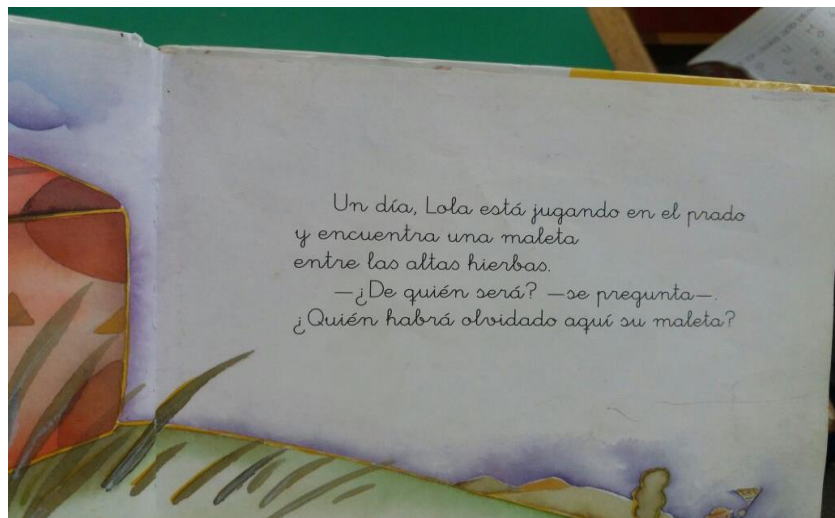 Un día, Lola está jugando en el prado
y encuentra una maleta
entre las altas hierbas.
—¿De quién será? —se pregunta—.
¿Quién habrá olvidado aquí su maleta?